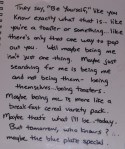 They say, "Be Yourself," like you
know exactly what that is.. like
you're a toaster or something.. like
there's only one way to pop
out you. Well maybe being me
isn't just one thing. Maybe just
searching for me is being me
and not being them - being
themselves.. being toasters.
Maybe being me is more like a
breakfast cereal variety pack.
Maybe that's what I'll be.. today..
But tomorrow, who knows? ...
maybe the blue plate special.